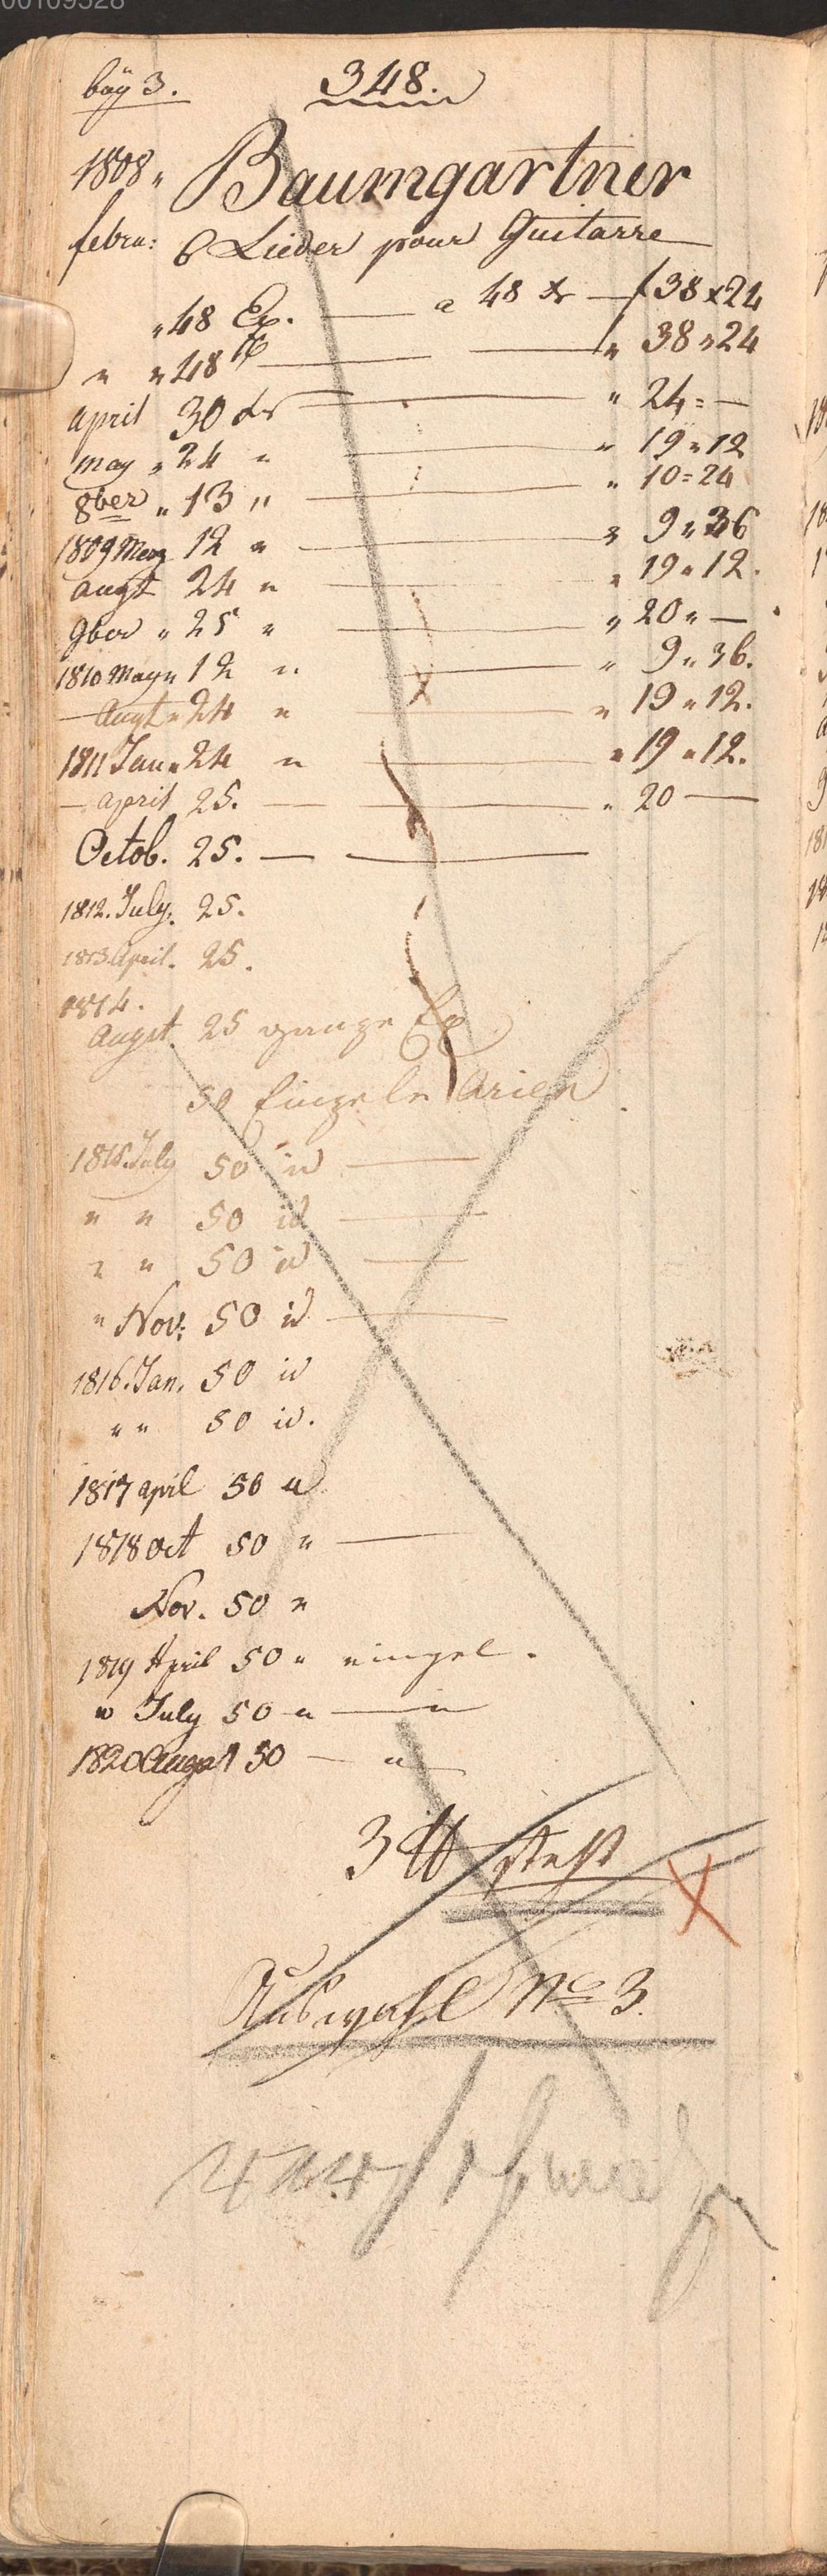 00109528
bÿ 3. 348.
1808 „ Baumgartner
febru: 6 Lieder pour Guitarre
„ 48 Ex. — a 48 xr — f 38 x 24
„ „ 48 — — „ 38 „ 24
April 30 dto — „ 24 = —
May „ 24 „ — „ 19 „ 12
8ber „ 13 „ — „ 10 = 24
1809 Merz 12 „ — „ 9 „ 36
Augt 24 „ — „ 19 „ 12.
9ber „ 25 „ — „ 20 „ —
1810 May „ 12 „ — „ 9 „ 36.
— Augt „ 24 „ — „ 19 „ 12.
1811 Jan „ 24 „ — „ 19 „ 12.
— April 25. — — „ 20 —
Octob. 25. — —
1812. July. 25.
1813 April. 25.
1814.
Augst. 25 ganze Ex
50 Einzeln Arien
1815. July 50 id —
„ „ 50 id —
„ „ 50 id —
„ Nov: 50 id —
1816. Jan. 50 id
„ „ 50 id.
1817 April 50 id
1818 Oct 50 „ —
Nov. 50 „
1819 April 50 „ einzel.
„ July 50 „ — „
1820 August 50 — „
3 steht
Auswahl No 3.